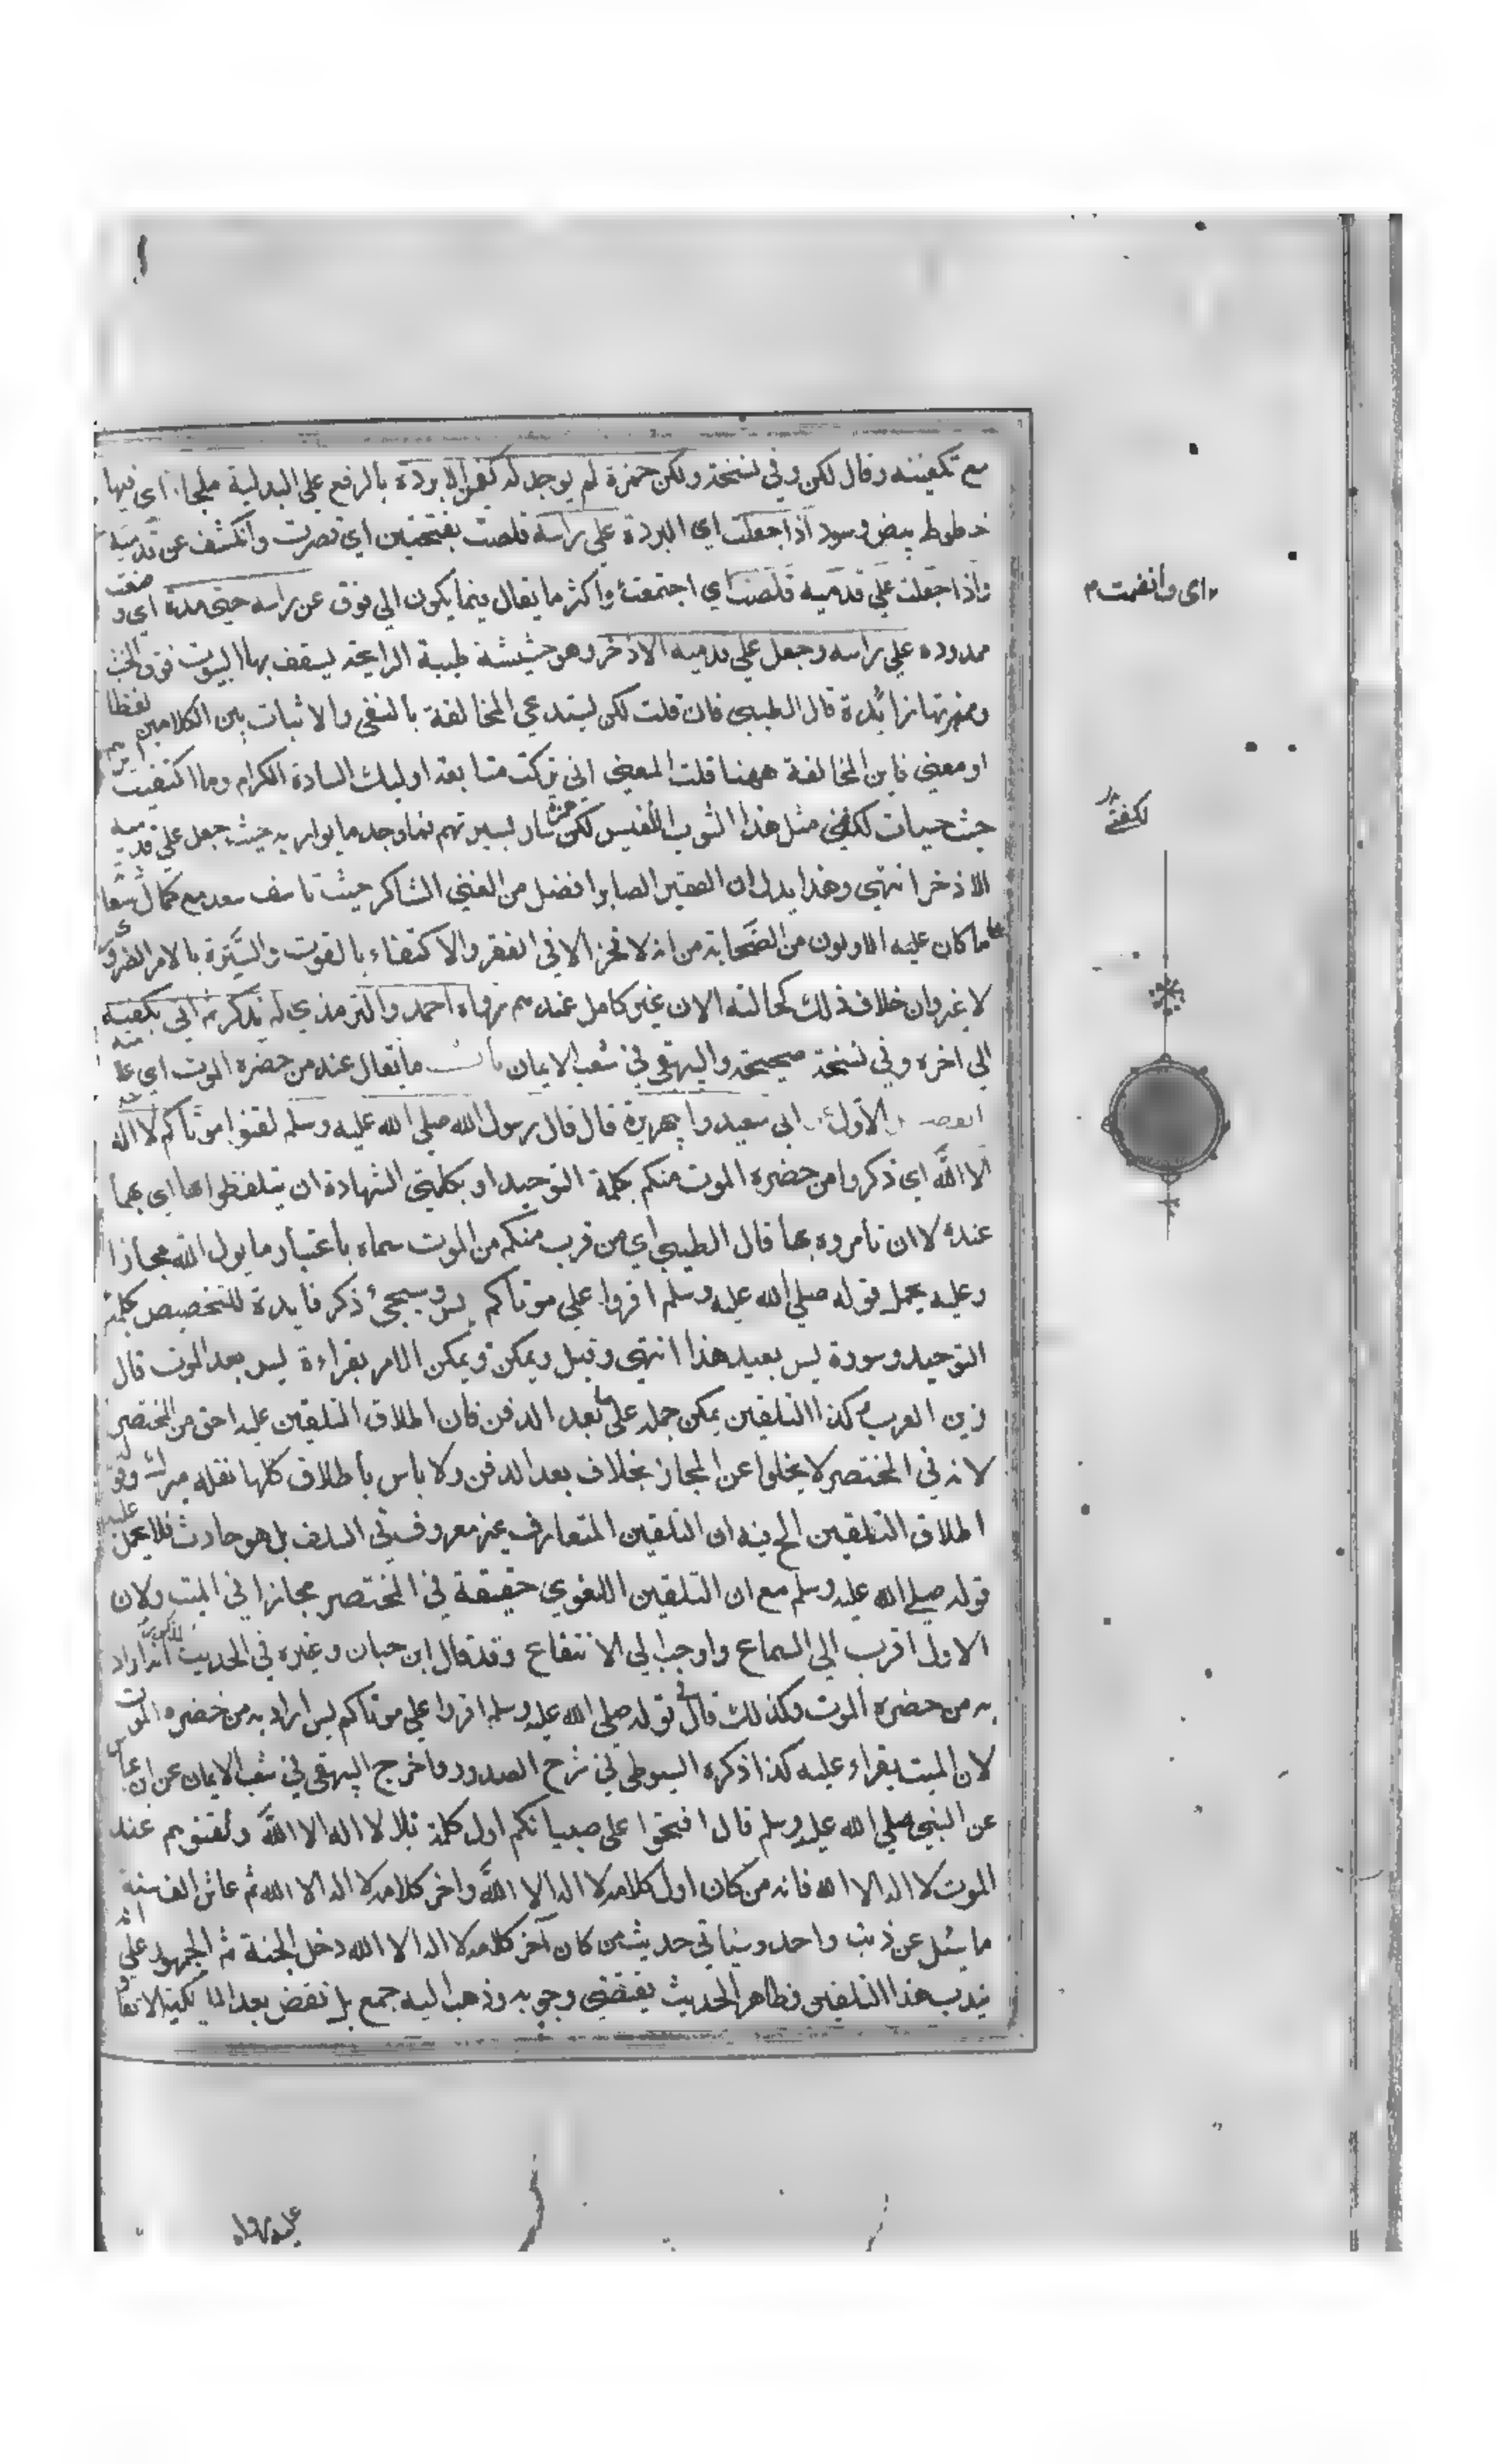 مع تكفينه وقال لكن وفي نسخة ولكن حمزة لم يوجد له كفن الا بردة بالرفع علي البدلية ملحا اي فيها
خطوط بيض وسود اذا جعلت اي البردة علي راسه قلصت بفتحتين اي قصرت وانكشف عن قدميه
واذا جعلت علي قدميه قلصت اي اجتمعت واكثر ما يقال فيما يكون الي فوق عن راسه حتي مدت اي وضعت
ممدوده علي راسه وجعل علي قدميه الاذخر وهو حشيشة طيبة الرايحة يسقف بها البيوت فوق الخشب
وهمزتها زائدة قال الطيبي فان قلت لكن يستدعي المخالفة بالنفي والاثبات بين الكلامين لفظا
او معني فاين المخالفة ههنا قلت المعني اني تركت متابعة اوليك السادة الكرام وما اكتفيت
حيث هيات لكفني مثل هذا الثوب النفيس لكن حمزة سار بسيرتهم فما وجد ما يواريه حيث جعل علي قدميه
الاذخر انتهي وهذا يدل ان الفقير الصابر افضل من الغني الشاكر حيث تاسف سعد مع كمال
ما كان عليه الاولون من الصحابة من انه لا فخر الا في الفقر والاكتفاء بالقوت والسترة بالامر الضروري
لا غير وان خلاف ذلك كحالته الان غير كامل عندهم رواه احمد والترمذي لم يذكر ثم اتي بكفنه
الي اخره وفي نسخة صحيحة والبيهقي في شعب الايمان باب ما يقال عند من حضره الموت اي علامته
الفصل الاول عن ابي سعيد وابي هريرة قال قال رسول الله صلي الله عليه وسلم لقنوا موتاكم لا اله
الا الله اي ذكروا من حضره الموت منكم بكلمة التوحيد او بكلمتي الشهادة ان تتلفظوا بها اي بهما
عنده لا ان تامروه بها قال الطيبي اي من قرب منكم من الموت سماه باعتبار ما يول اليه مجازا
وعليه يحمل قوله صلي الله عليه وسلم اقروا علي موتاكم يس وسيجئ ذكر فايدة للتخصيص بكلمة
التوحيد وسورة يس بعيد هذا انتهي وقيل ويمكن ويمكن الامر بقراءة يس بعد الموت قال
زين العرب كذا التلقين يمكن حمله علي ما بعد الدفن فان اطلاق التلقين عليه احق من المختصر
لانه في المختصر لا يخلوا عن المجاز بخلاف بعد الدفن ولا باس باطلاق كلها نقله ميرك وقوله
اطلاق التلقين الخ فيه ان التلقين المتعارف غير معروف في السلف بل هو حادث فلا يحمل عليه
قوله صلي الله عليه وسلم مع ان التلقين اللغوي حقيقة في المختصر مجازا في الميت ولان
الاول اقرب الي السماع واوجب الي الانتفاع وقد قال ابن حبان وغيره في الحديث المذكور انه اراد
به من حضره الموت وكذلك قال في قوله صلي الله عليه وسلم اقروا علي موتاكم يس اراد به من حضره الموت
لان الميت يقراء عليه كذا ذكره السيوطي في شرح الصدور واخرج البيهقي في شعب الايمان عن ابن عباس
عن النبي صلي الله عليه وسلم قال افتحوا علي صبيانكم اول كلمة بلا اله الا الله ولقنوهم عند
الموت لا اله الا الله فانه من كان اول كلامه لا اله الا الله واخر كلامه لا اله الا الله ثم عاش الف سنة
ما سئل عن ذنب واحد وسياتي حديث من كان آخر كلامه لا اله الا الله دخل الجنة ثم الجمهور علي انه
يندب هذا التلقين وظاهر الحديث يقتضي وجوبه وذهب اليه جمع بل نقض بعد المالكية الاتفاق
اي وانضمت م
لكفني
عليه رواه